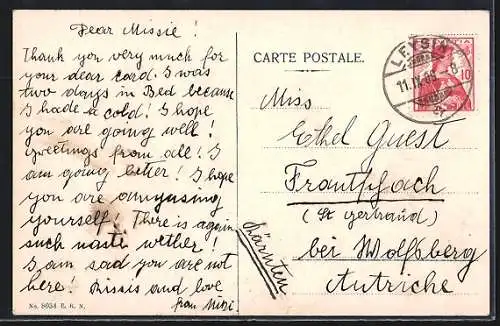 Dear Missie!
Thank you very much for
your dear card. I was
two days in Bed because
I hade a cold! I hope
you are going well!
Greetings from all! I
am going better! I hope
you are amyusing
yourself! There is again
such nasti wether!
I am sad you are not
here! Kissis and love
from Mitzi
No. 8034 E. R. N.
CARTE POSTALE.
LEYSIN
11.IV.09.-8
10
Miss
Ethel Guest
Frantschach
(St gertraud)
bei Wolfsberg
Kärnten
Autriche